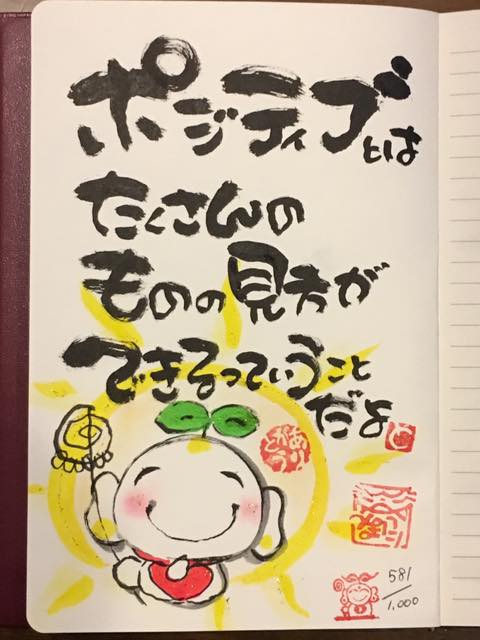 ポジティブとは
たくさんの
ものの見方が
できるっていうこと
だよ
581
1,000